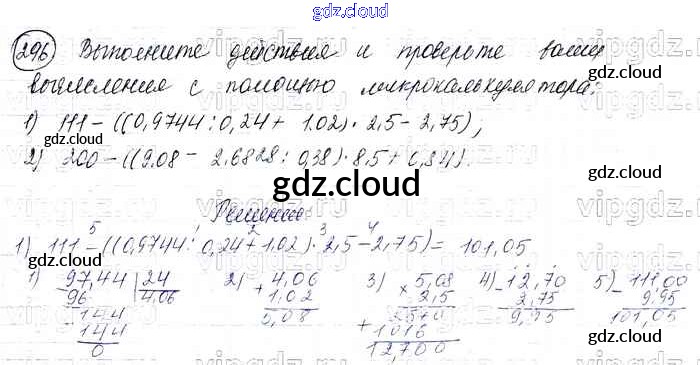 gdz.cloud
296 Выполните действия и проверьте ваши
вычисления с помощью микрокалькулятора:
gdz.cloud
1) 111 - ((0,9744 : 0,24 + 1.02) · 2,5 - 2,75);
gdz.cloud
2) 200 - ((9.08 - 2,6828 : 0,38) · 8,5 + 0,84).
gdz.cloud
Решение
gdz.cloud
1) 111 - ((0,9744 : 0,24 + 1.02) · 2,5 - 2,75) = 101,05
1) 97,44 | 24 2) 4,06 3) 5,08 4) 12,70 5) 111,00
96 4,06 + 1,02 × 2,5 - 2,75 - 9,95
144 5,08 2540 9,95 101,05
144 + 1016
0 12,700
gdz.cloud
gdz.cloud